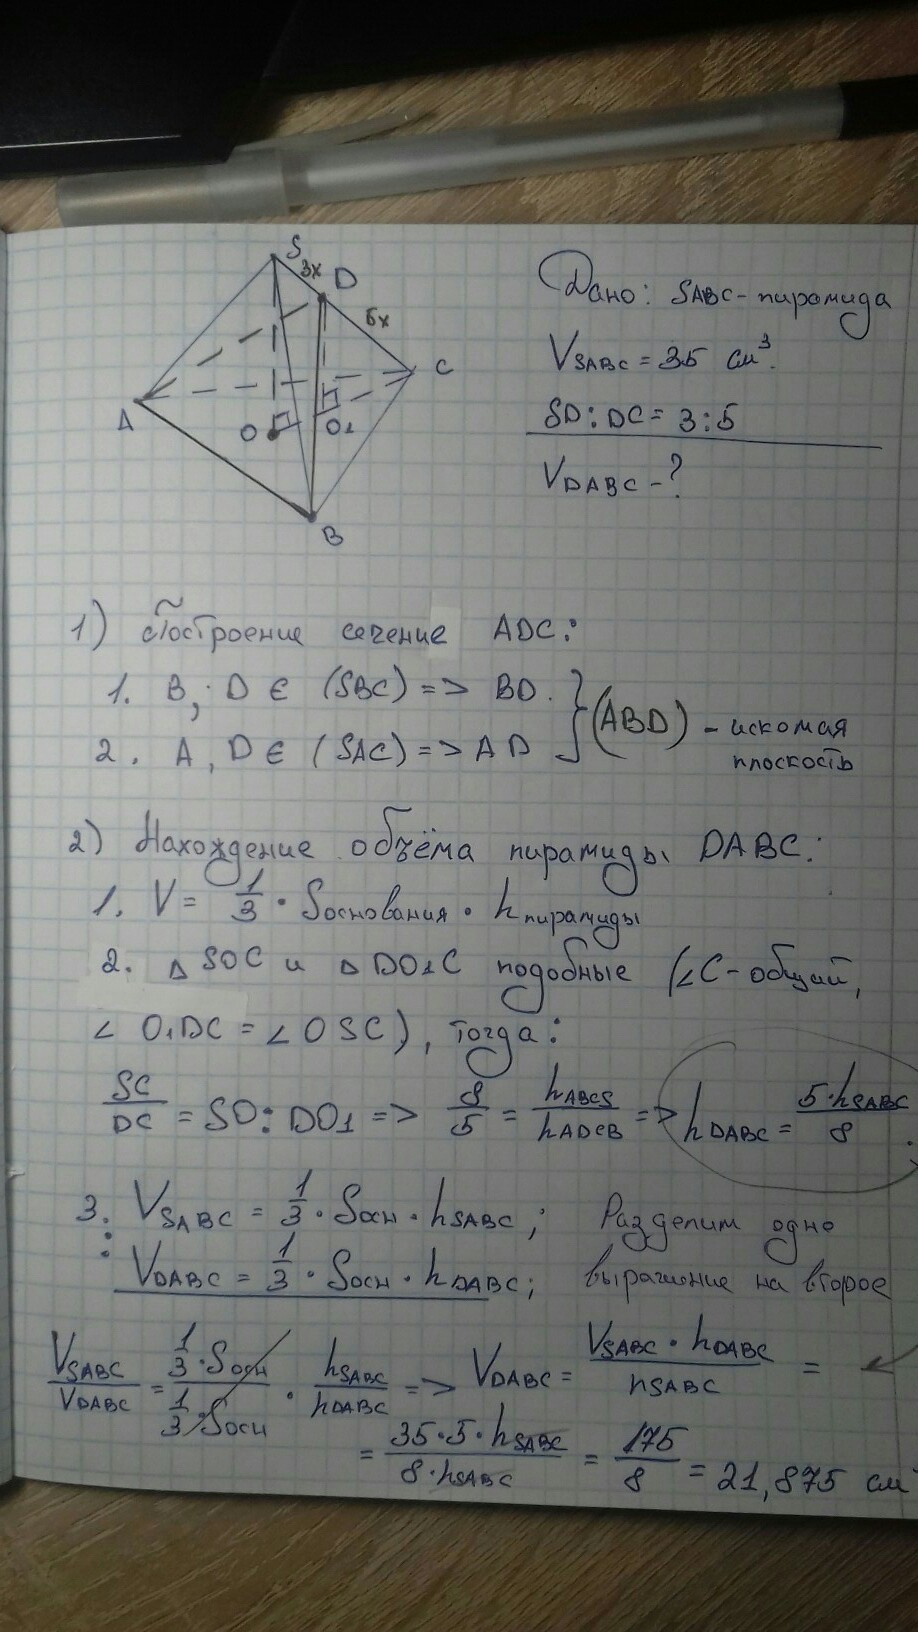 S
3x
D
5x
C
A
O
O1
B
Дано: SABC - пирамида
VSABC = 35 см³.
SD : DC = 3 : 5
VDABC - ?
1) Построение сечение ADC:
1. B, D ∈ (SBC) => BD.
2. A, D ∈ (SAC) => AD
} (ABD) - искомая
плоскость
2) Нахождение объёма пирамиды DABC:
1. V = 1/3 · Sоснования · hпирамиды
2. △ SOC и △ DO1C подобные (∠C - общий,
∠ O1DC = ∠ OSC), тогда:
SC/DC = SO : DO1 => 8/5 = hABCS/hADCB => hDABC = 5·hSABC/8.
3. VSABC = 1/3 · Sосн · hSABC; Разделим одно
: VDABC = 1/3 · Sосн · hDABC; выражение на второе
VSABC/VDABC = 1/3·Sосн / 1/3·Sосн · hSABC/hDABC => VDABC = VSABC · hDABC / hSABC =
= 35·5·hSABC / 8·hSABC = 175/8 = 21,875 см